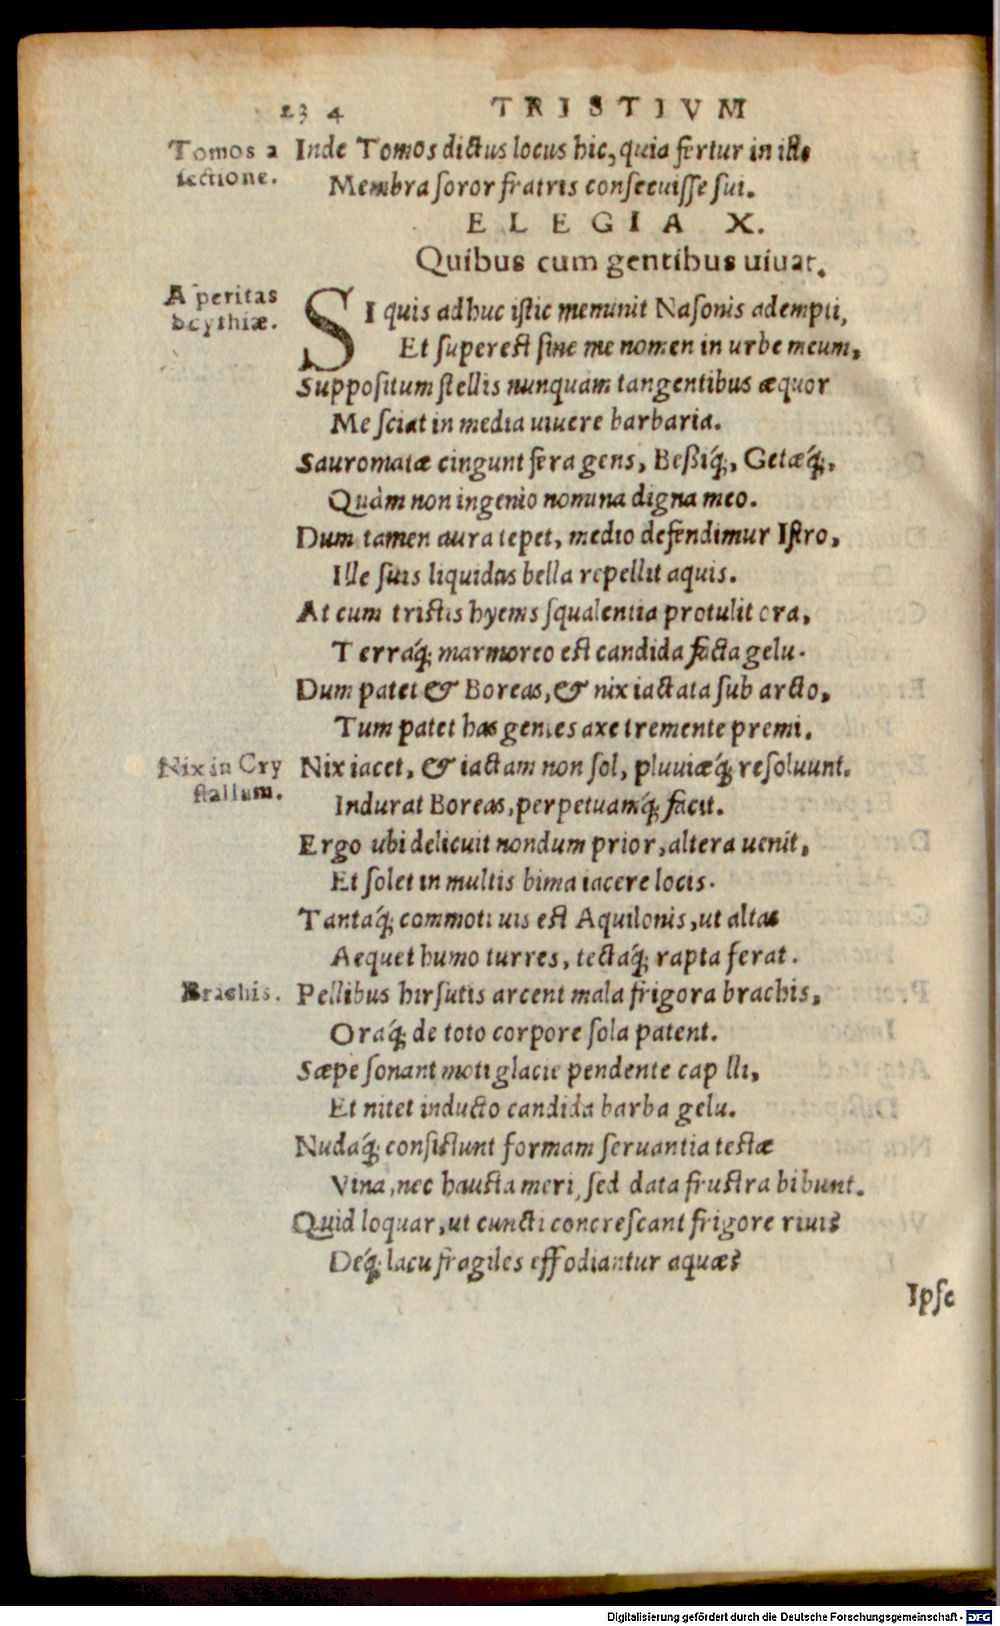 234 TRISTIVM
Tomos a
sectione.
Inde Tomos dictus locus hic, quia fertur in isto
Membra soror fratris consecuisse sui.
ELEGIA X.
Quibus cum gentibus uiuat.
Asperitas
Scythiæ.
SI quis adhuc istic meminit Nasonis adempti,
Et superest sine me nomen in urbe meum,
Suppositum stellis nunquam tangentibus æquor
Me sciat in media uiuere barbaria.
Sauromatæ cingunt fera gens, Bessiq́;, Getæq́;,
Quàm non ingenio nomina digna meo.
Dum tamen aura tepet, medio defendimur Istro,
Ille suis liquidas bella repellit aquis.
At cum tristis hyems squalentia protulit ora,
Terraq́; marmoreo est candida facta gelu.
Dum patet & Boreas, & nix iactata sub arcto,
Tum patet has gentes axe tremente premi.
Nix in Cry
stallum.
Nix iacet, & iactam non sol, pluuiæq́; resoluunt.
Indurat Boreas, perpetuamq́; facit.
Ergo ubi delicuit nondum prior, altera uenit,
Et solet in multis bima iacere locis.
Tantaq́; commoti uis est Aquilonis, ut altas
Aequet humo turres, tectaq́; rapta ferat.
Brachis.
Pellibus hirsutis arcent mala frigora brachis,
Oraq́; de toto corpore sola patent.
Sæpe sonant moti glacie pendente cap lli,
Et nitet inducto candida barba gelu.
Nudaq́; consistunt formam seruantia testæ
Vina, nec hausta meri, sed data frustra bibunt.
Quid loquar, ut cuncti concrescant frigore riui?
Deq́; lacu fragiles effodiantur aquæ?
Ipse
Digitalisierung gefördert durch die Deutsche Forschungsgemeinschaft - DFG